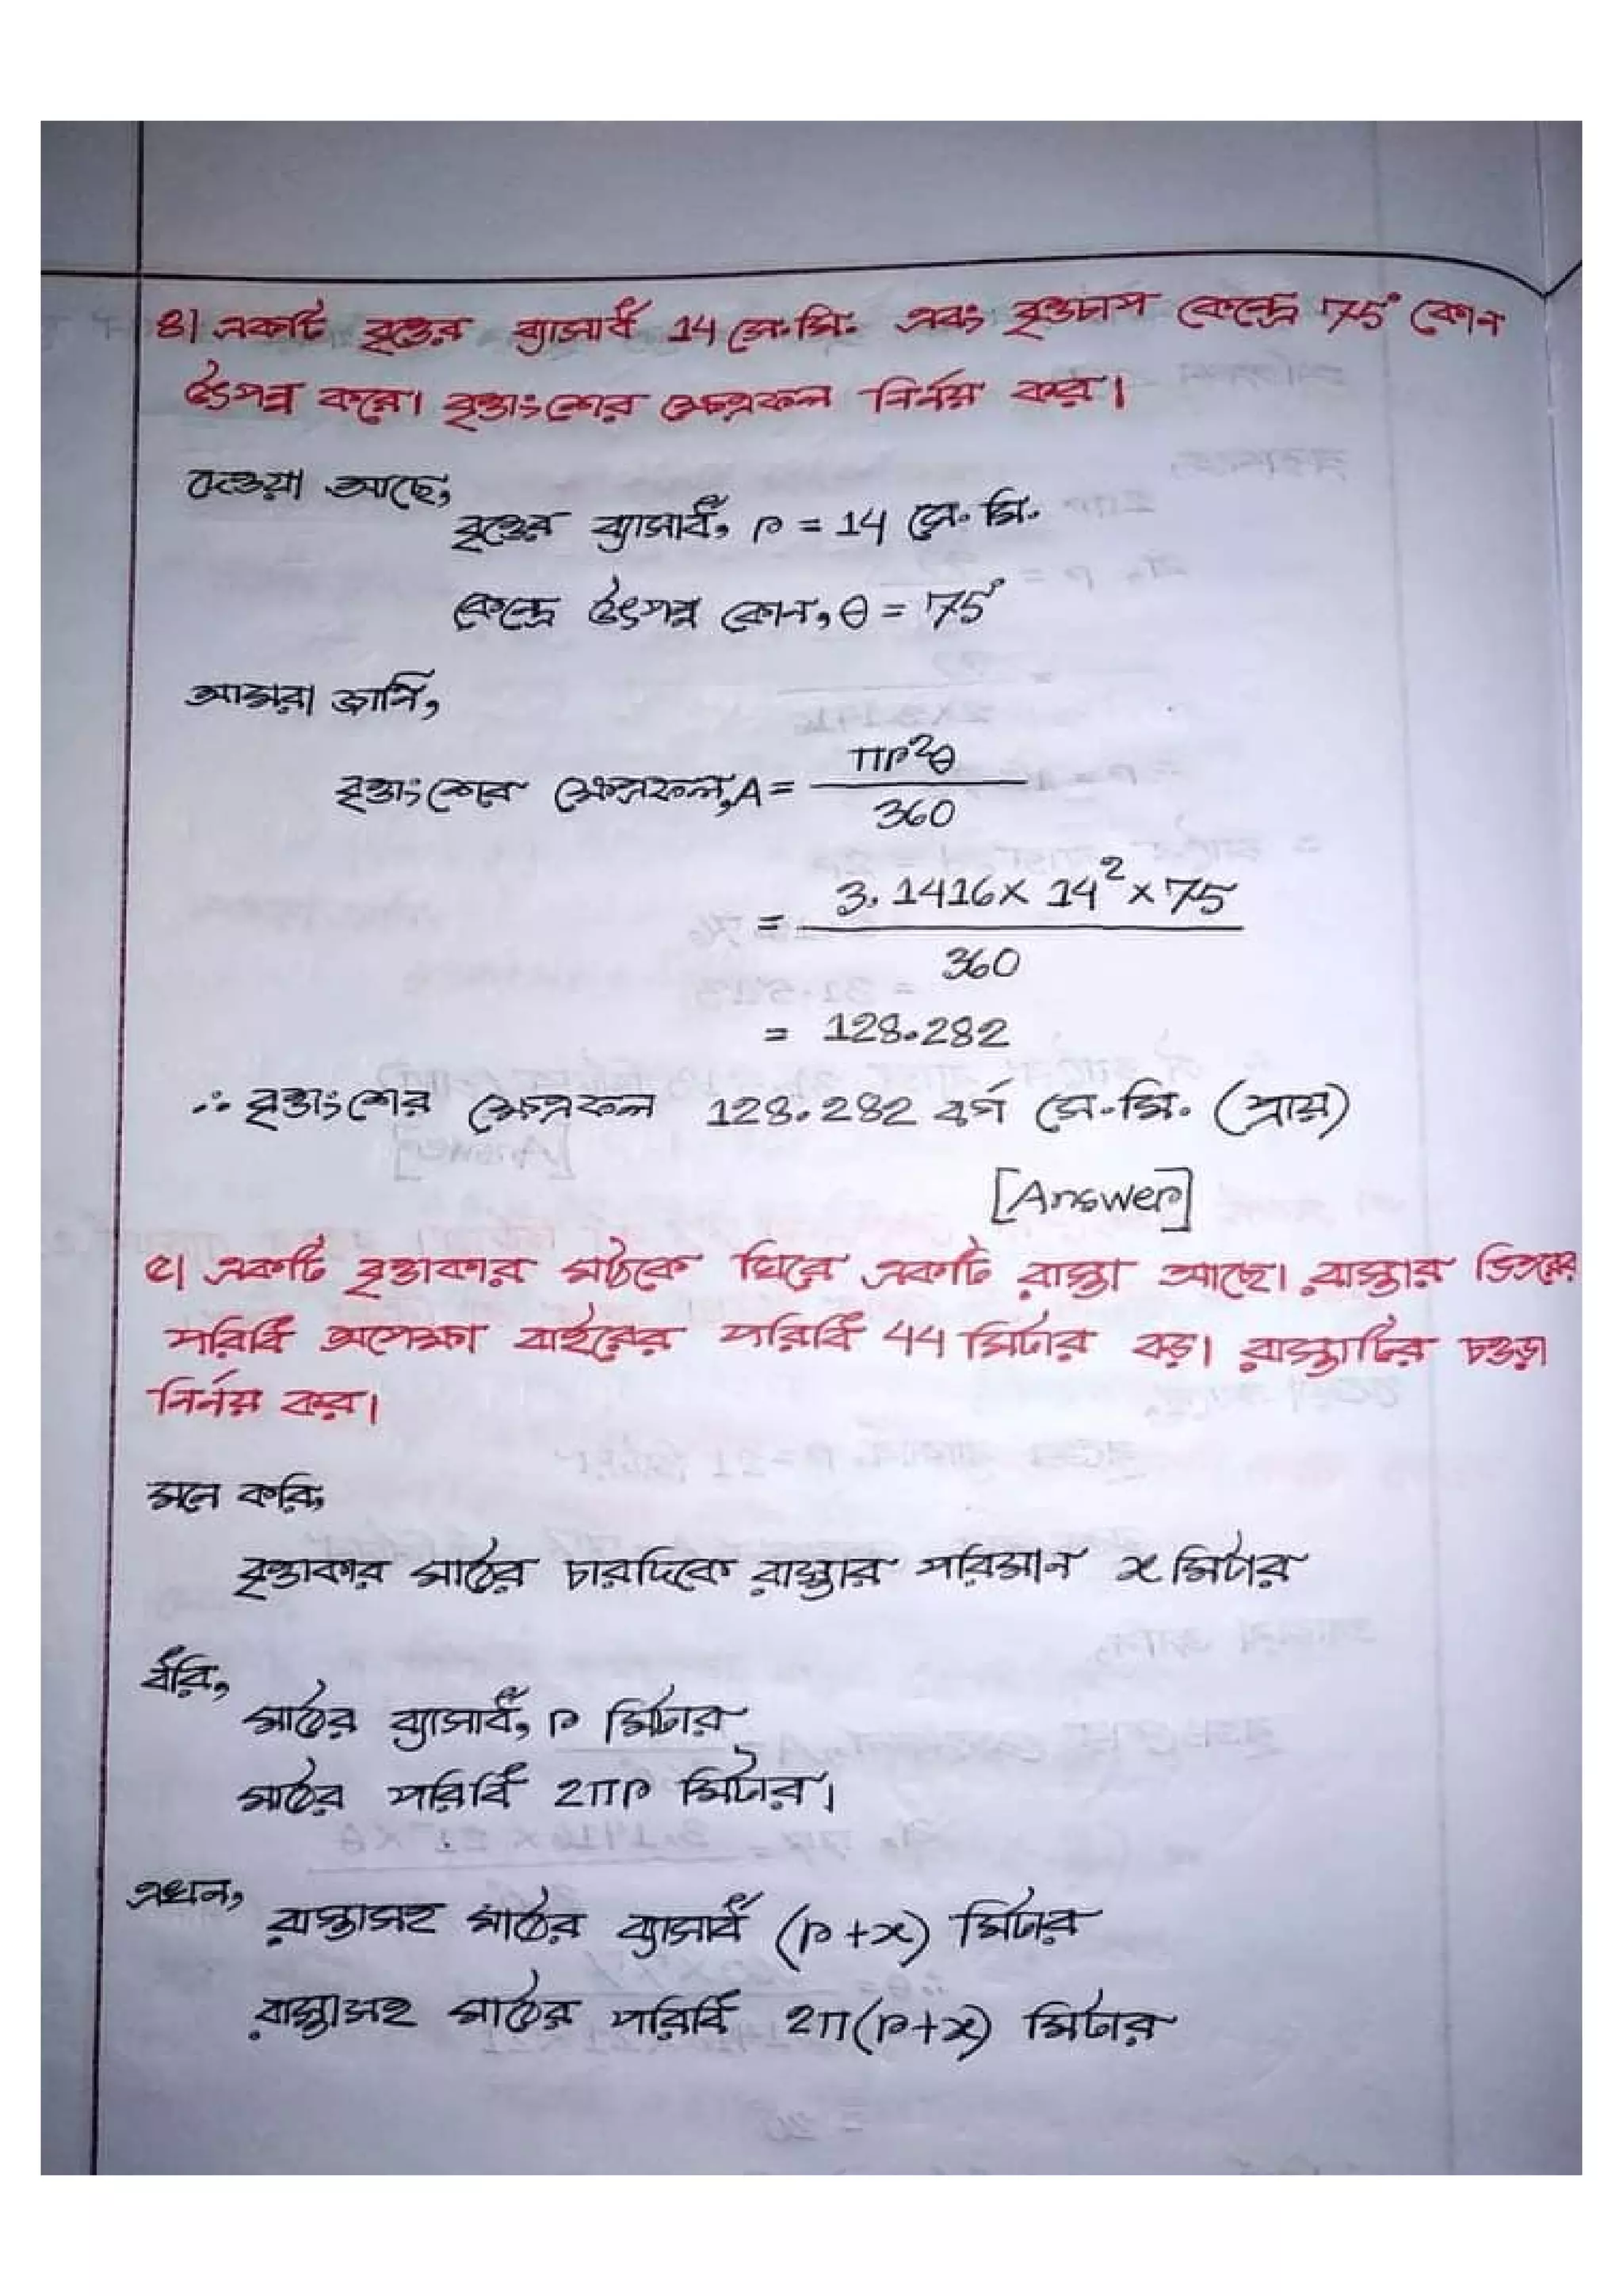 ৪। একটি বৃত্তের ব্যাসার্ধ 14 সে.মি. এবং বৃত্তচাপ কেন্দ্রে 75° কোন
উৎপন্ন করে। বৃত্তাংশের ক্ষেত্রফল নির্নয় কর।
দেওয়া আছে,
বৃত্তের ব্যাসার্ধ, r = 14 সে. মি.
কেন্দ্রে উৎপন্ন কোন, θ = 75°
আমরা জানি,
বৃত্তাংশের ক্ষেত্রফল, A = πr²θ / 360
= 3.1416 × 14² × 75 / 360
= 128.282
∴ বৃত্তাংশের ক্ষেত্রফল 128.282 বর্গ সে.মি. (প্রায়)
[Answer]
৫। একটি বৃত্তাকার মাঠকে ঘিরে একটি রাস্তা আছে। রাস্তার ভিতরের
পরিধি অপেক্ষা বাইরের পরিধি 44 মিটার বড়। রাস্তাটির চওড়া
নির্নয় কর।
মনে করি,
বৃত্তাকার মাঠের চারদিকে রাস্তার পরিমান x মিটার
ধরি,
মাঠের ব্যাসার্ধ, r মিটার
মাঠের পরিধি 2πr মিটার।
এখন,
রাস্তাসহ মাঠের ব্যাসার্ধ (r+x) মিটার
রাস্তাসহ মাঠের পরিধি 2π(r+x) মিটার